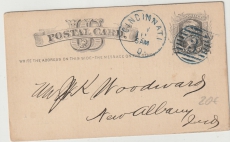 POSTAL CARD
CINCINNATI
WRITE THE ADDRESS ON THIS SIDE - THE MESSAGE ON THE OTHER
Woodward
New Albany
Ind
20¢